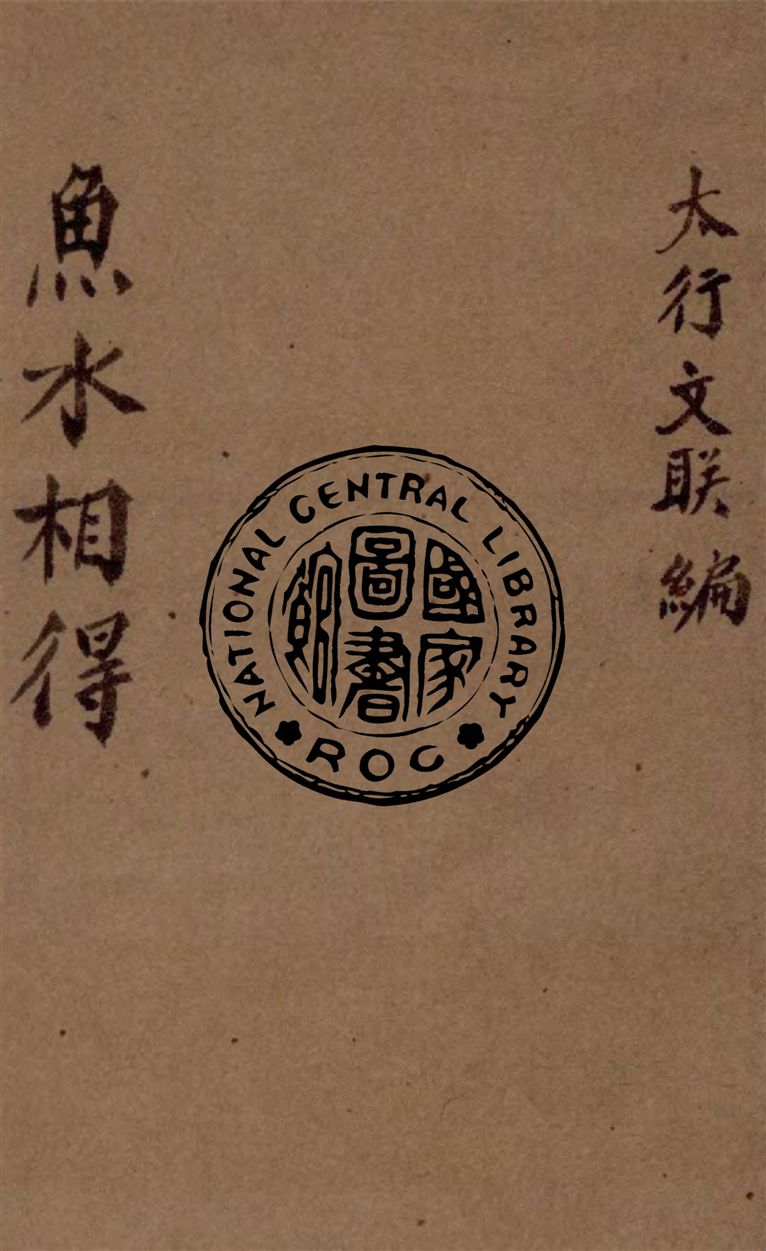 太行文联編
魚水相得
NATIONAL CENTRAL LIBRARY
國家圖書館
ROC